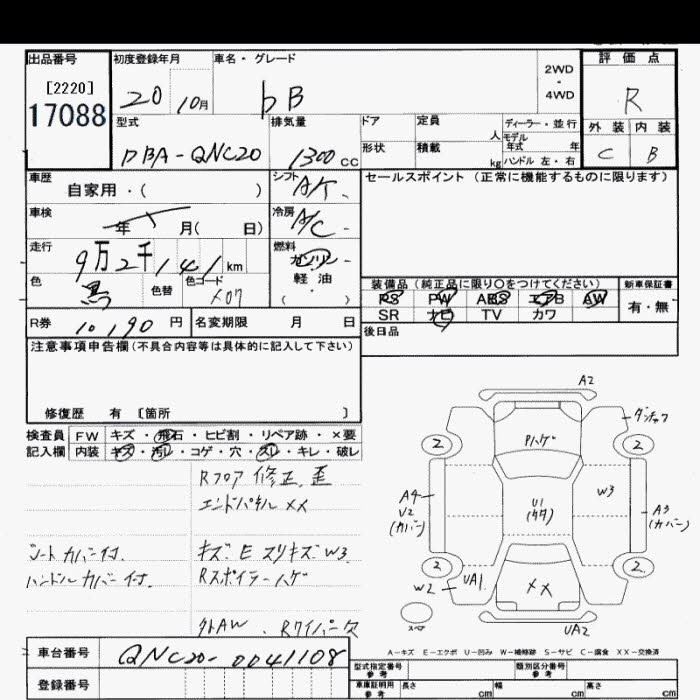 出品番号 初度登録年月 車名・グレード 2WD・4WD 評価点
[2220]
17088 20 10月 bB R
型式 排気量 ドア 定員 人 ディーラー・並行 外装 内装
DBA-QNC20 1300cc 形状 積載 kg モデル年式 年 ハンドル 左・右 C B
車歴 自家用・( ) シフト A/T セールスポイント (正常に機能するものに限ります)
車検 年 月( 日) 冷房 A/C
走行 9万2千141km 燃料 ガソリン・軽油・( )
色 黒 色替 色コード X07 装備品 (純正品に限り○をつけてください) 新車保証書
PS PW ABS エアB AW 有・無
SR ナビ TV カワ
R券 10,190円 名変期限 月 日 後日品
注意事項申告欄(不具合内容等は具体的に記入して下さい)
修復歴 有 〔箇所 〕
検査員 FW キズ・飛石・ヒビ割・リペア跡・×要
記入欄 内装 キズ・汚レ・コゲ・穴・スレ・キレ・破レ
Rフロア 修正、歪
エンドパネル XX
シートカバー付. キズ E スリキズ W3
ハンドルカバー付. Rスポイラーハゲ
外AW、Rワイパー欠
A2
2 Pハゲ 2
A4 V2 (カバー) U1 W3 A3 (カバー)
2 2
W2 UA1 XX
スペア UA2
A-キズ E-エクボ U-凹み W-補修跡 S-サビ C-腐食 XX-交換済
車台番号 QNC20-0041108 型式指定番号 参考 類別区分番号 参考
登録番号 車庫証明用 参考 長さ cm 幅 cm 高さ cm